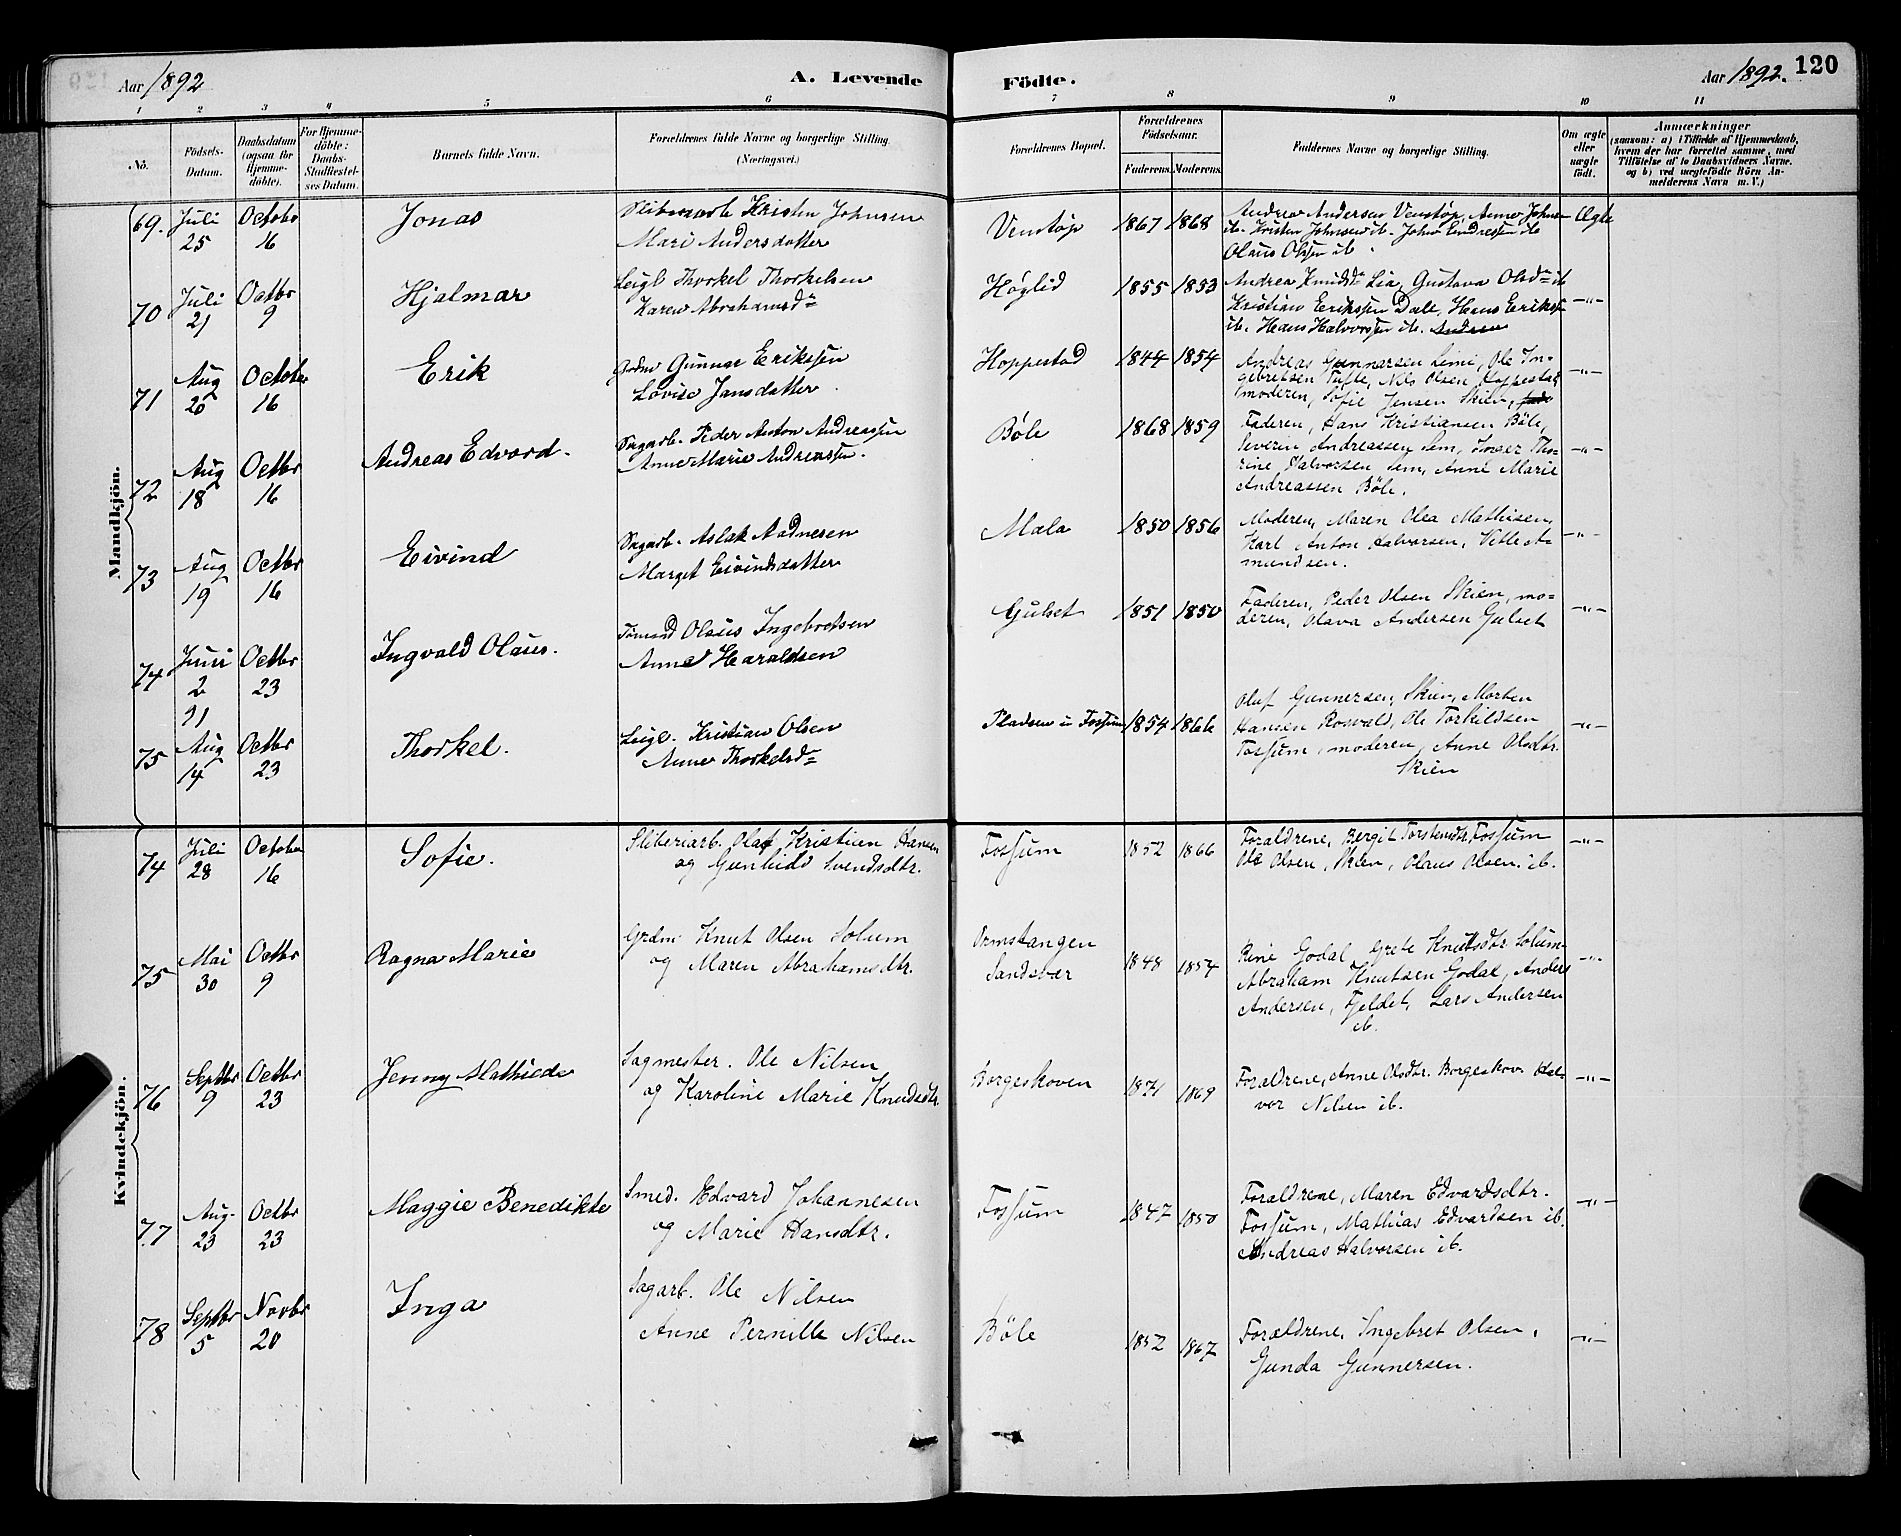 Aar 1892
A. Levende
Födte.
Aar 1892. 120
1 2 3 4 5 6 7 8 9 10 11
No.
Födsels-Datum.
Daabsdatum (ogsaa for Hjemme-döbte).
For Hjemme-döbte: Daabs-Stadfæstel-ses Datum.
Barnets fulde Navn.
Forældrenes fulde Navne og borgerlige Stilling. (Næringsvei.)
Forældrenes Bopæl.
Forældrenes Födselsaar.
Faderens. Moderens.
Faddernes Navne og borgerlige Stilling.
Om ægte eller uægte födt.
Anmærkninger
(saasom: a) i Tilfælde af Hjemmedaab, hvem der har forrettet samme, med Tilföielse af to Daabsvidners Navne, og b) ved uægtefödte Börn An-melderens Navn m. V.)
Mandkjön.
69. Juli 25 Octobr 16 Jonas
Sliberarb Kristen Johnsen
Mari Andersdatter
Venstøp 1867 1868
Andrea Andersen Venstøp, Anne Johnsen
ib. Kristen Johnsen ib. John Endressen ib
Olaus Olsen ib.
Ægte
70 Juli 21 Octbr 9 Hjalmar
Leigl Thorkel Thorkelsen
Karen Abrahamsdr
Høglid 1855 1853
Andrea Knudsdr Lia, Gustava Olsdr ib
Kristian Erikssen Dale, Hans Erikssen
ib. Hans Halvorssen ib.
-"-
71 Aug 20 October 16 Erik
Grdm Gunnar Erikssen
Lovise Jansdatter
Hoppestad 1844 1854
Andreas Gunnarsen Limi, Ole In-
gebretsen Tufte, Nils Olsen Hoppestad,
moderen, Sofie Jensen Skien,
-"-
72 Aug 18 Octbr 16 Andreas Edvard.
Sagarb. Peder Anton Andreassen
Anne Marie Andreassen.
Bøle 1868 1859
Faderen, Hans Kristiansen Bøle,
Severin Andreassen Sem, Inger Tho-
rine Halvorsen Sem, Anne Marie
Andreassen Bøle.
-"-
73 Aug 19 Octbr 16 Eivind
Sagarb. Aslak Aadnesen
Marget Eivindsdatter
Mæla 1850 1856
Moderen, Maren Olea Mathisen,
Karl Anton Halvorsen, Vetle A-
mundsen.
-"-
74 Juni 2 Octbr 23 Ingvald Olaus.
21
Tømmd Olaus Ingebretsen
Anne Haraldsen
Gulset 1851 1850
Faderen, Peder Olsen Skien, mo-
deren, Olava Andersen Gulset
-"-
75 Aug 14 Octbr 23 Thorkel.
Leigl. Kristian Olsen
Anne Thorkelsdr
Pladsen u Fossum 1854 1866
Oluf Gunnersen, Skien, Morten
Hansen Rosvald, Ole Torkildsen
Fossum, moderen, Anne Olsdtr.
Skien
-"-
Kvindekjön.
74 Juli 28 October 16 Sofie.
Sliberiarb. Olaf Kristian Hansen
og Gunhild Svendsdtr.
Fossum 1852 1866
Foraldrene, Bergit Torstensdtr. Fossum
Ole Olsen, Skien, Olaus Olsen. ib.
-"-
75 Mai 30 Octbr 9 Ragna Marie
Grdm. Knut Olsen Solum
og Maren Abrahamsdtr.
Ormstangen
Sandsver
1848 1854
Rine Godal, Grete Knutsdtr Solum
Abraham Knutsen Godal, Anders
Andersen, Fjeldet, Lars Andersen
ib.
-"-
76 Septbr 9 Octbr 23 Jenny Mathilde
Sagmester. Ole Nilsen
og Karoline Marie Knudsdtr.
Borgeskoven 1871 1869
Foraldrene, Anne Olsdtr. Borgeskov. Hal-
vor Nilsen ib.
-"-
77 Aug. 23 Octbr 23 Maggie Benedikte
Smed. Edvard Johannesen
og Marie Hansdtr.
Fossum 1847 1850
Foraldrene, Maren Edvardsdtr.
Fossum, Mathias Edvardsen ib.
Andreas Halvorsen ib.
-"-
78 Septbr 5 Novbr 20 Inga
Sagarb. Ole Nilsen
Anne Pernille Nilsen
Bøle 1852 1867
Forældrene, Ingebret Olsen,
Gunda Gunnersen.
-"-